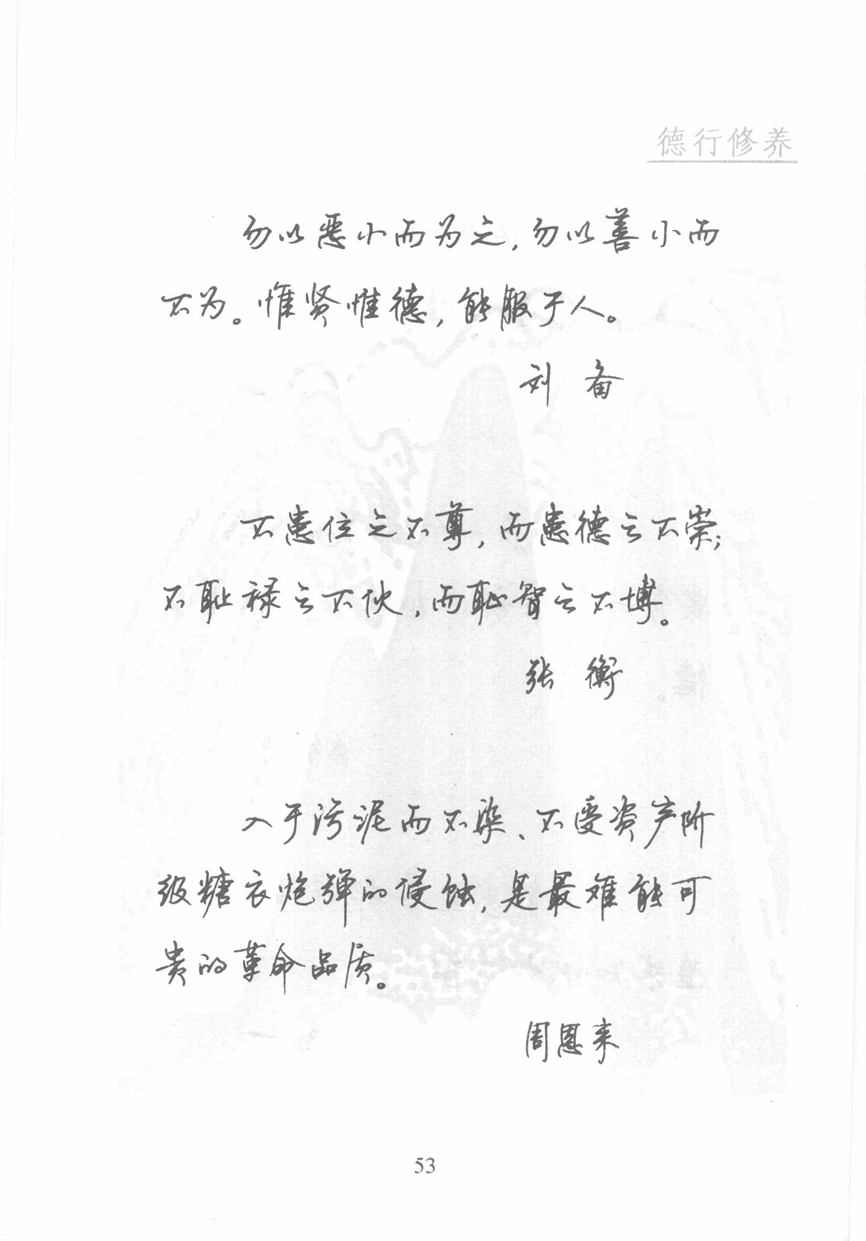 德行修养
勿以恶小而为之，勿以善小而
不为。惟贤惟德，能服于人。
刘备
不患位之不尊，而患德之不崇；
不耻禄之不伙，而耻智之不博。
张衡
入于污泥而不染、不受资产阶
级糖衣炮弹的侵蚀，是最难能可
贵的革命品质。
周恩来
53